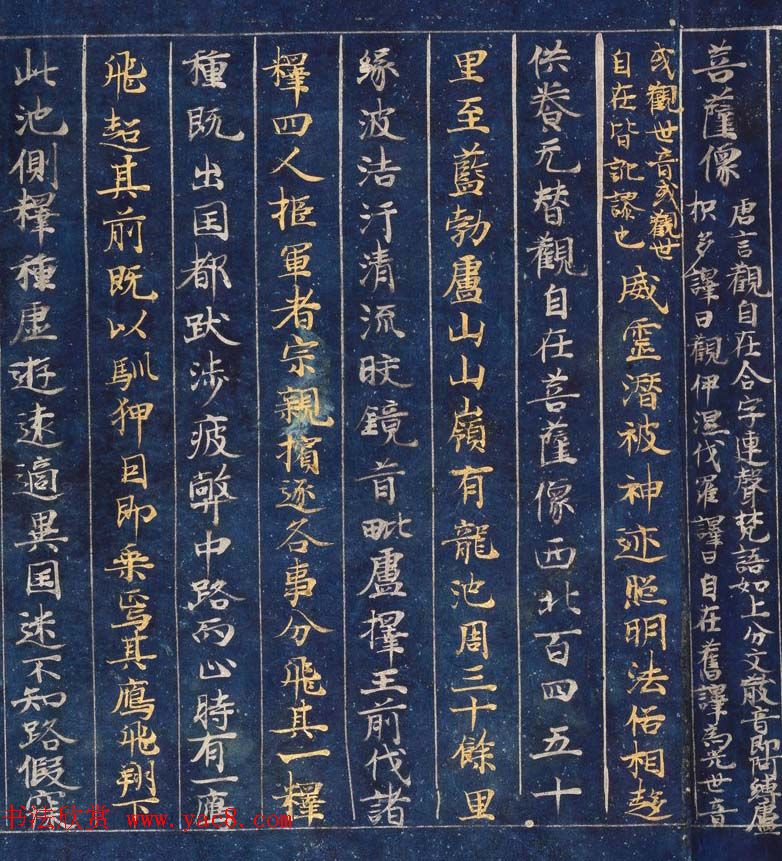 菩薩像
唐言觀自在合字連聲梵語如上分文散音即阿縛盧
枳多譯曰觀伊濕伐羅譯曰自在舊譯為光世音
或觀世音或觀世
自在皆訛謬也
威靈潛被神迹照明法俗相趍
供養无替觀自在菩薩像西北百四五十
里至藍勃盧山山嶺有龍池周三十餘里
緑波浩汗清流皎鏡昔毗盧擇王前伐諸
釋四人拒軍者宗親擯逐各事分飛其一釋
種既出国都跋涉疲弊中路而止時有一鴈
飛超其前既以馴狎因即乘焉其鴈飛翔下
此池側釋種虚遊遠適異国迷不知路假
书法欣赏 www.yac8.com